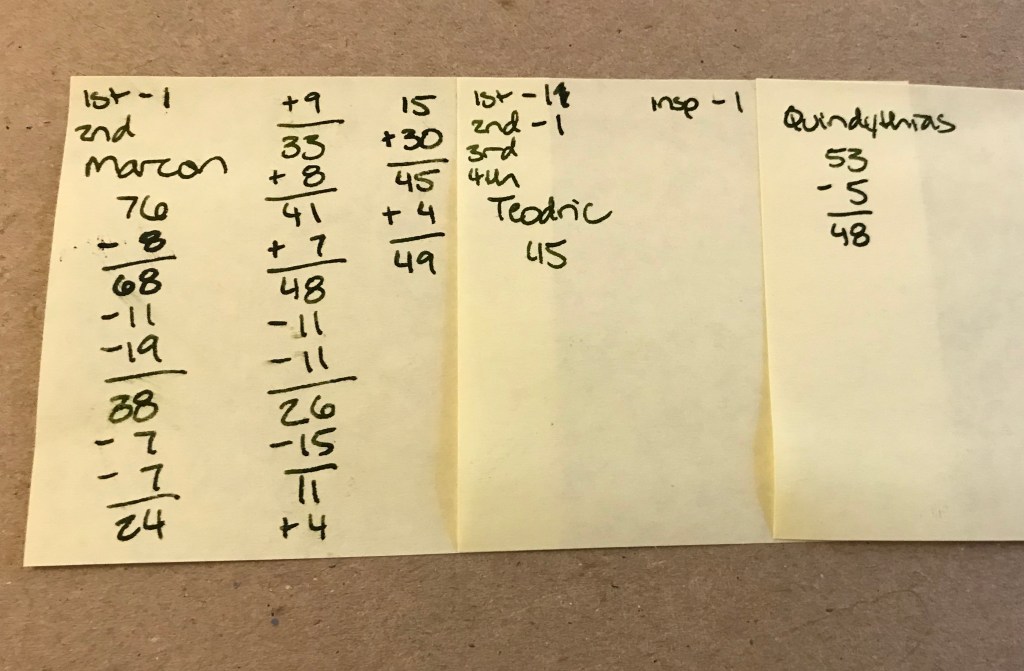 1st - 1
2nd
Marcon
76
- 8
68
- 11
- 19
38
- 7
- 7
24
+ 9
33
+ 8
41
+ 7
48
- 11
- 11
26
- 15
11
+ 4
15
+ 30
45
+ 4
49
1st - 11
2nd - 1
3rd
4th
Teodric
45
insp - 1
Quindythias
53
- 5
48